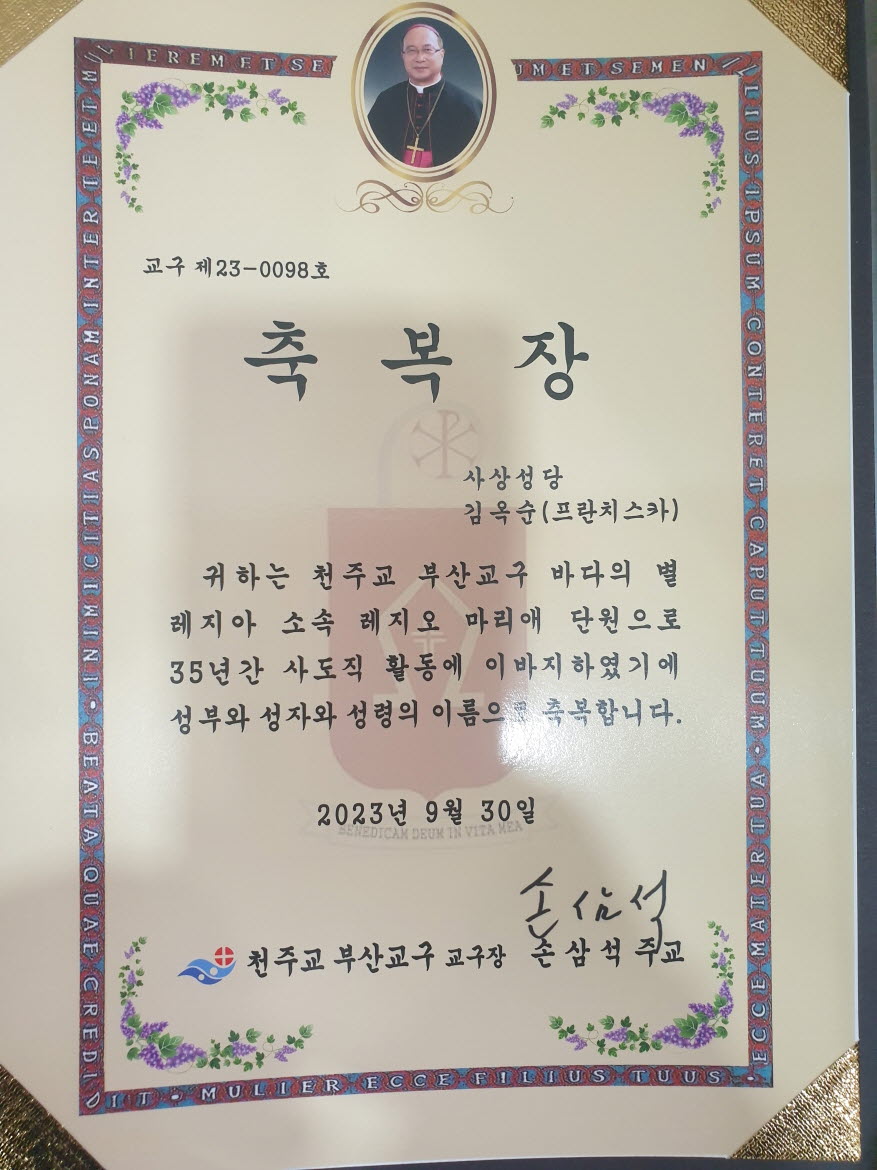 IEREM ET SE
M ET SEMEN
INIMICITIAS PONAM INTER TE ET M
LIUS IPSUM CONTERET CAPUT TUUM • 
교구 제23-0098호
축 복 장
사상성당
김옥순(프란치스카)
귀하는 천주교 부산교구 바다의 별
레지아 소속 레지오 마리애 단원으로
35년간 사도직 활동에 이바지하였기에
성부와 성자와 성령의 이름으로 축복합니다.
2023년 9월 30일
BENEDICAM DEUM IN VITA MEA
손삼석
천주교 부산교구 교구장 손삼석 주교
BEATA QUAE CREDI
DIT • MULIER ECCE FILIUS TUUS •
ECCE MATER TUA